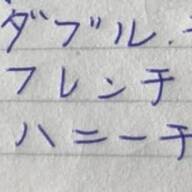 ダブル
フレンチ
ハニーチ